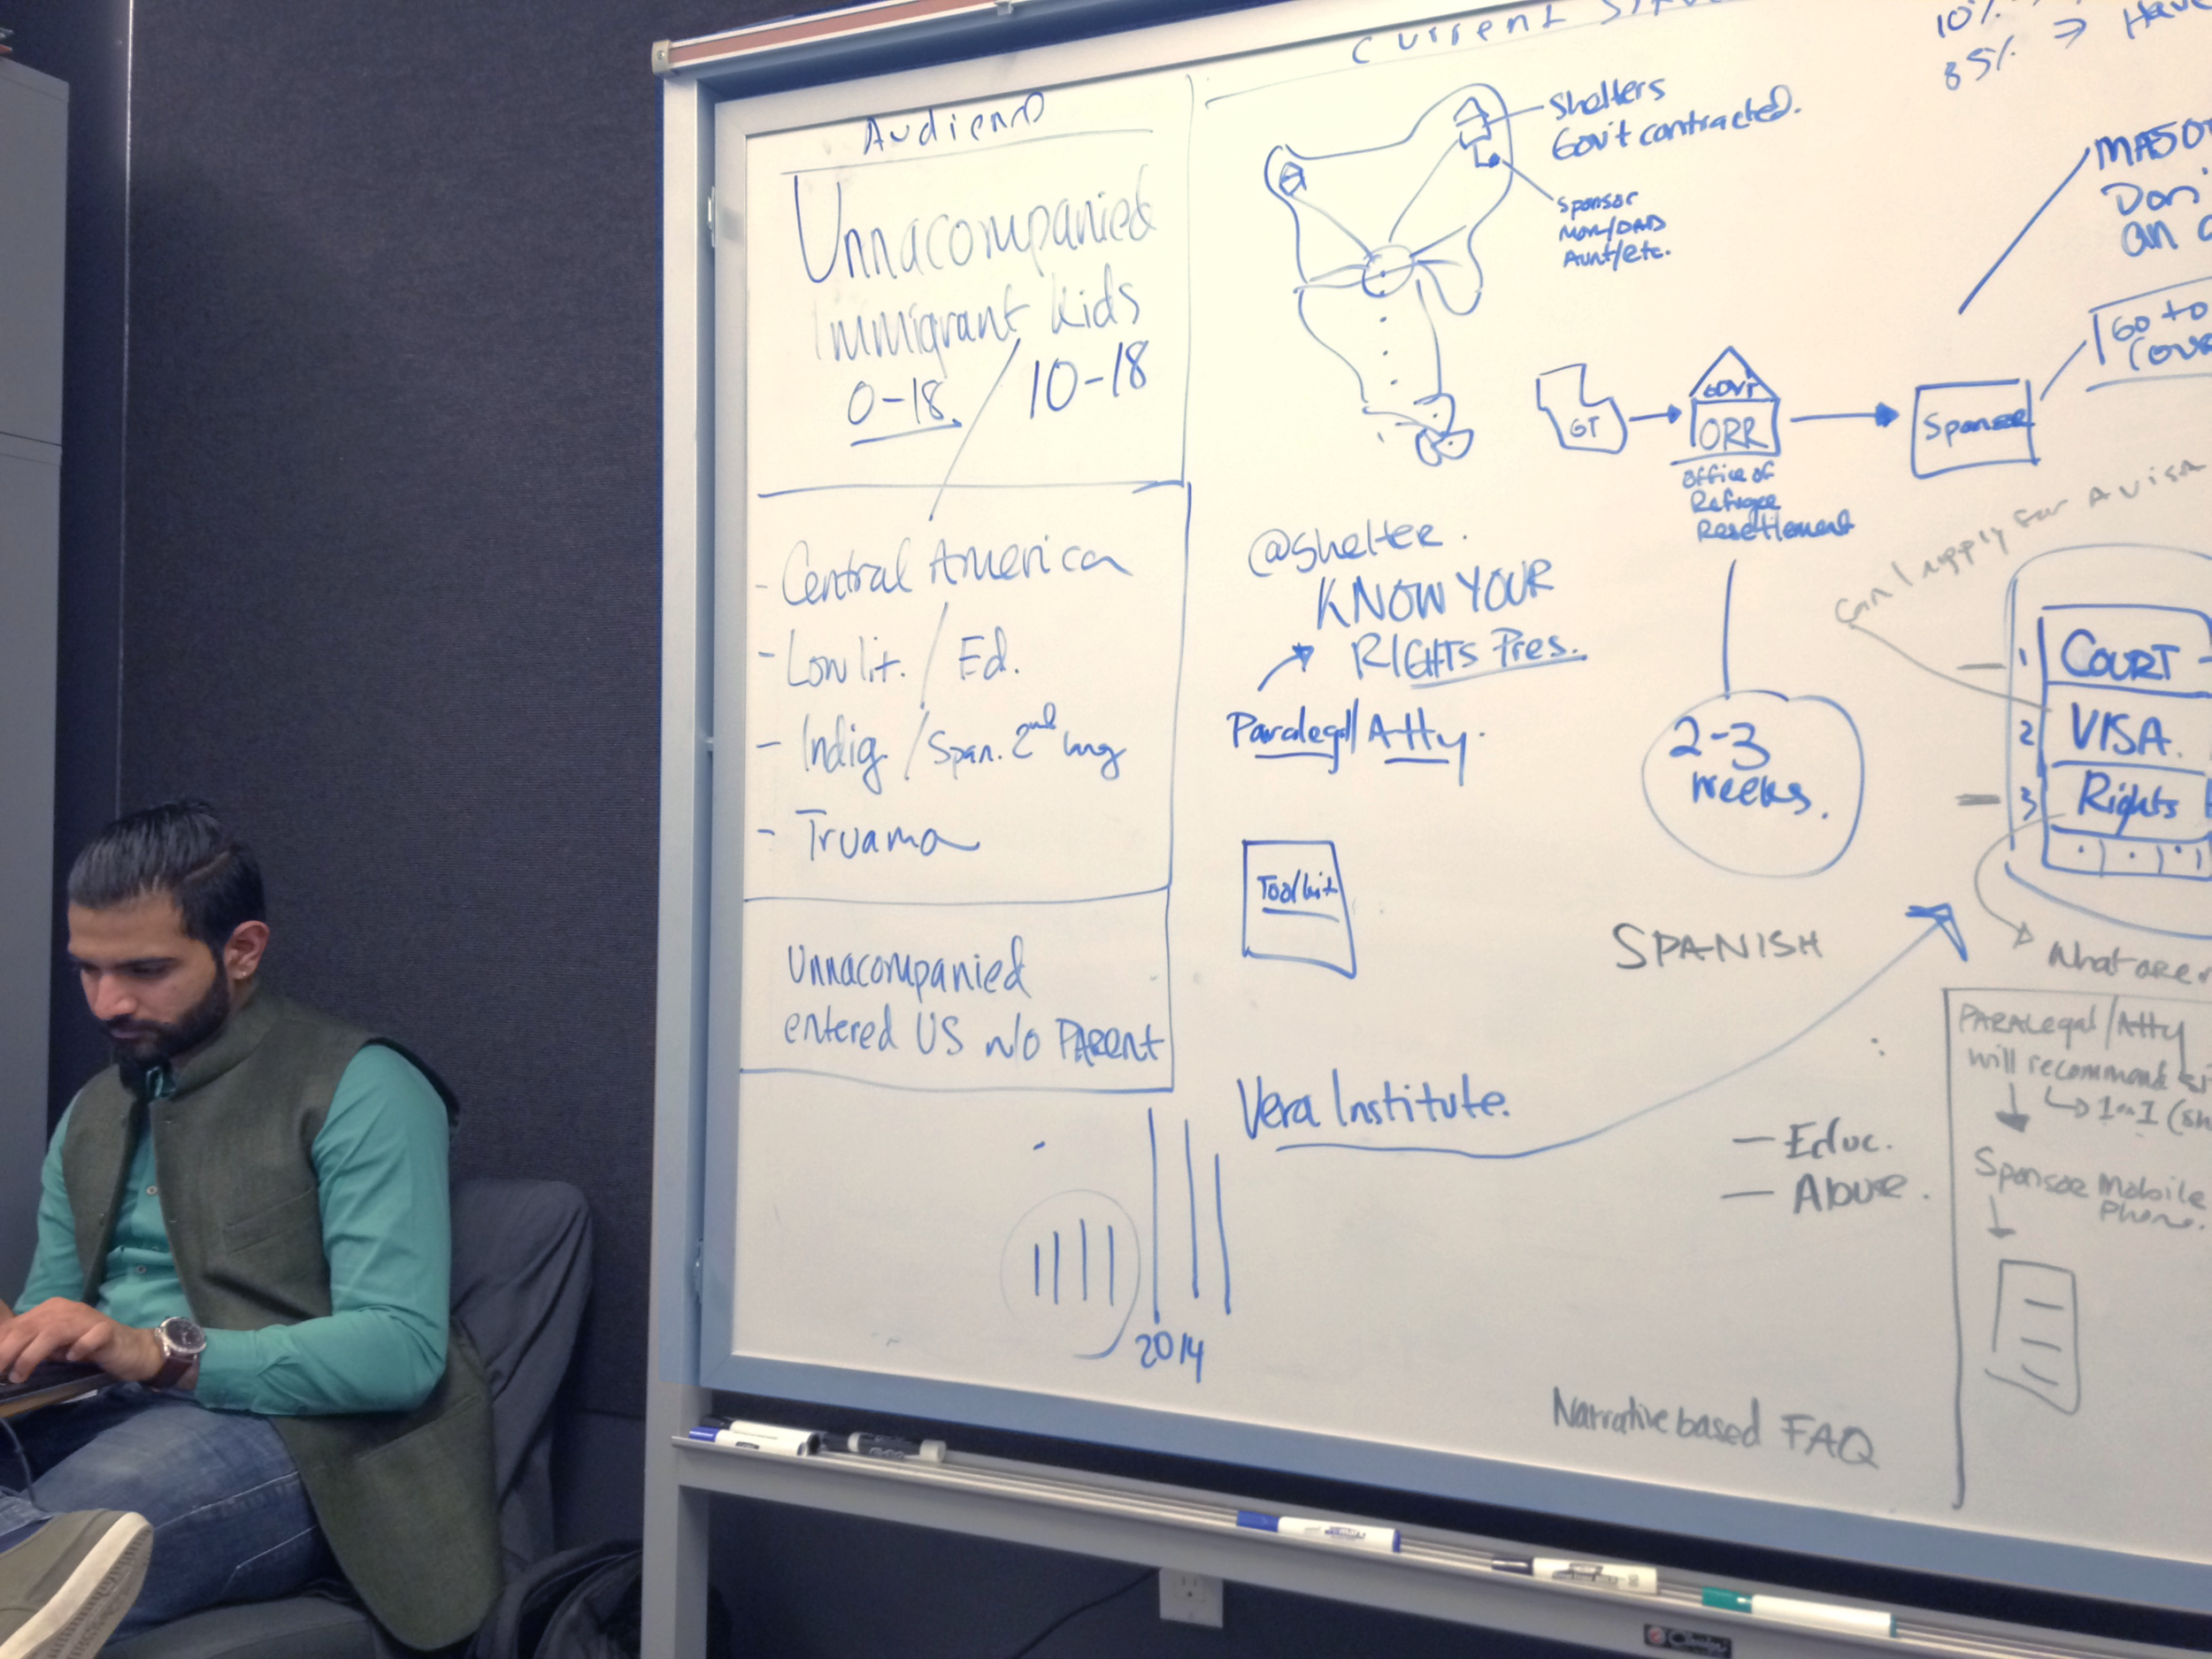 Audience
Unnacompanied
Immigrant Kids
0-18 10-18
- Central America
- Low lit. / Ed.
- Indig. / Span. 2nd lang
- Truama
Unnacompanied
entered US w/o PARENT
2014
Current
Shelters
Gov't contracted.
Sponsor
Mom/DAD
Aunt/etc.
GT
GOVT
ORR
Office of
Refugee
Resetlement
Sponsor
10%
85% => Have
Don'
an
Go to
@shelter.
KNOW YOUR
RIGHTS Pres.
Paralegal/Atty.
Toolkit
2-3
weeks.
Can I apply for a visa
1 COURT
2 VISA.
3 Rights
What are
SPANISH
Vera Institute.
- Educ.
- Abuse.
PARALegal/Atty
will recommend
1 on 1
Sponsor Mobile
Phone.
Narrative based FAQ